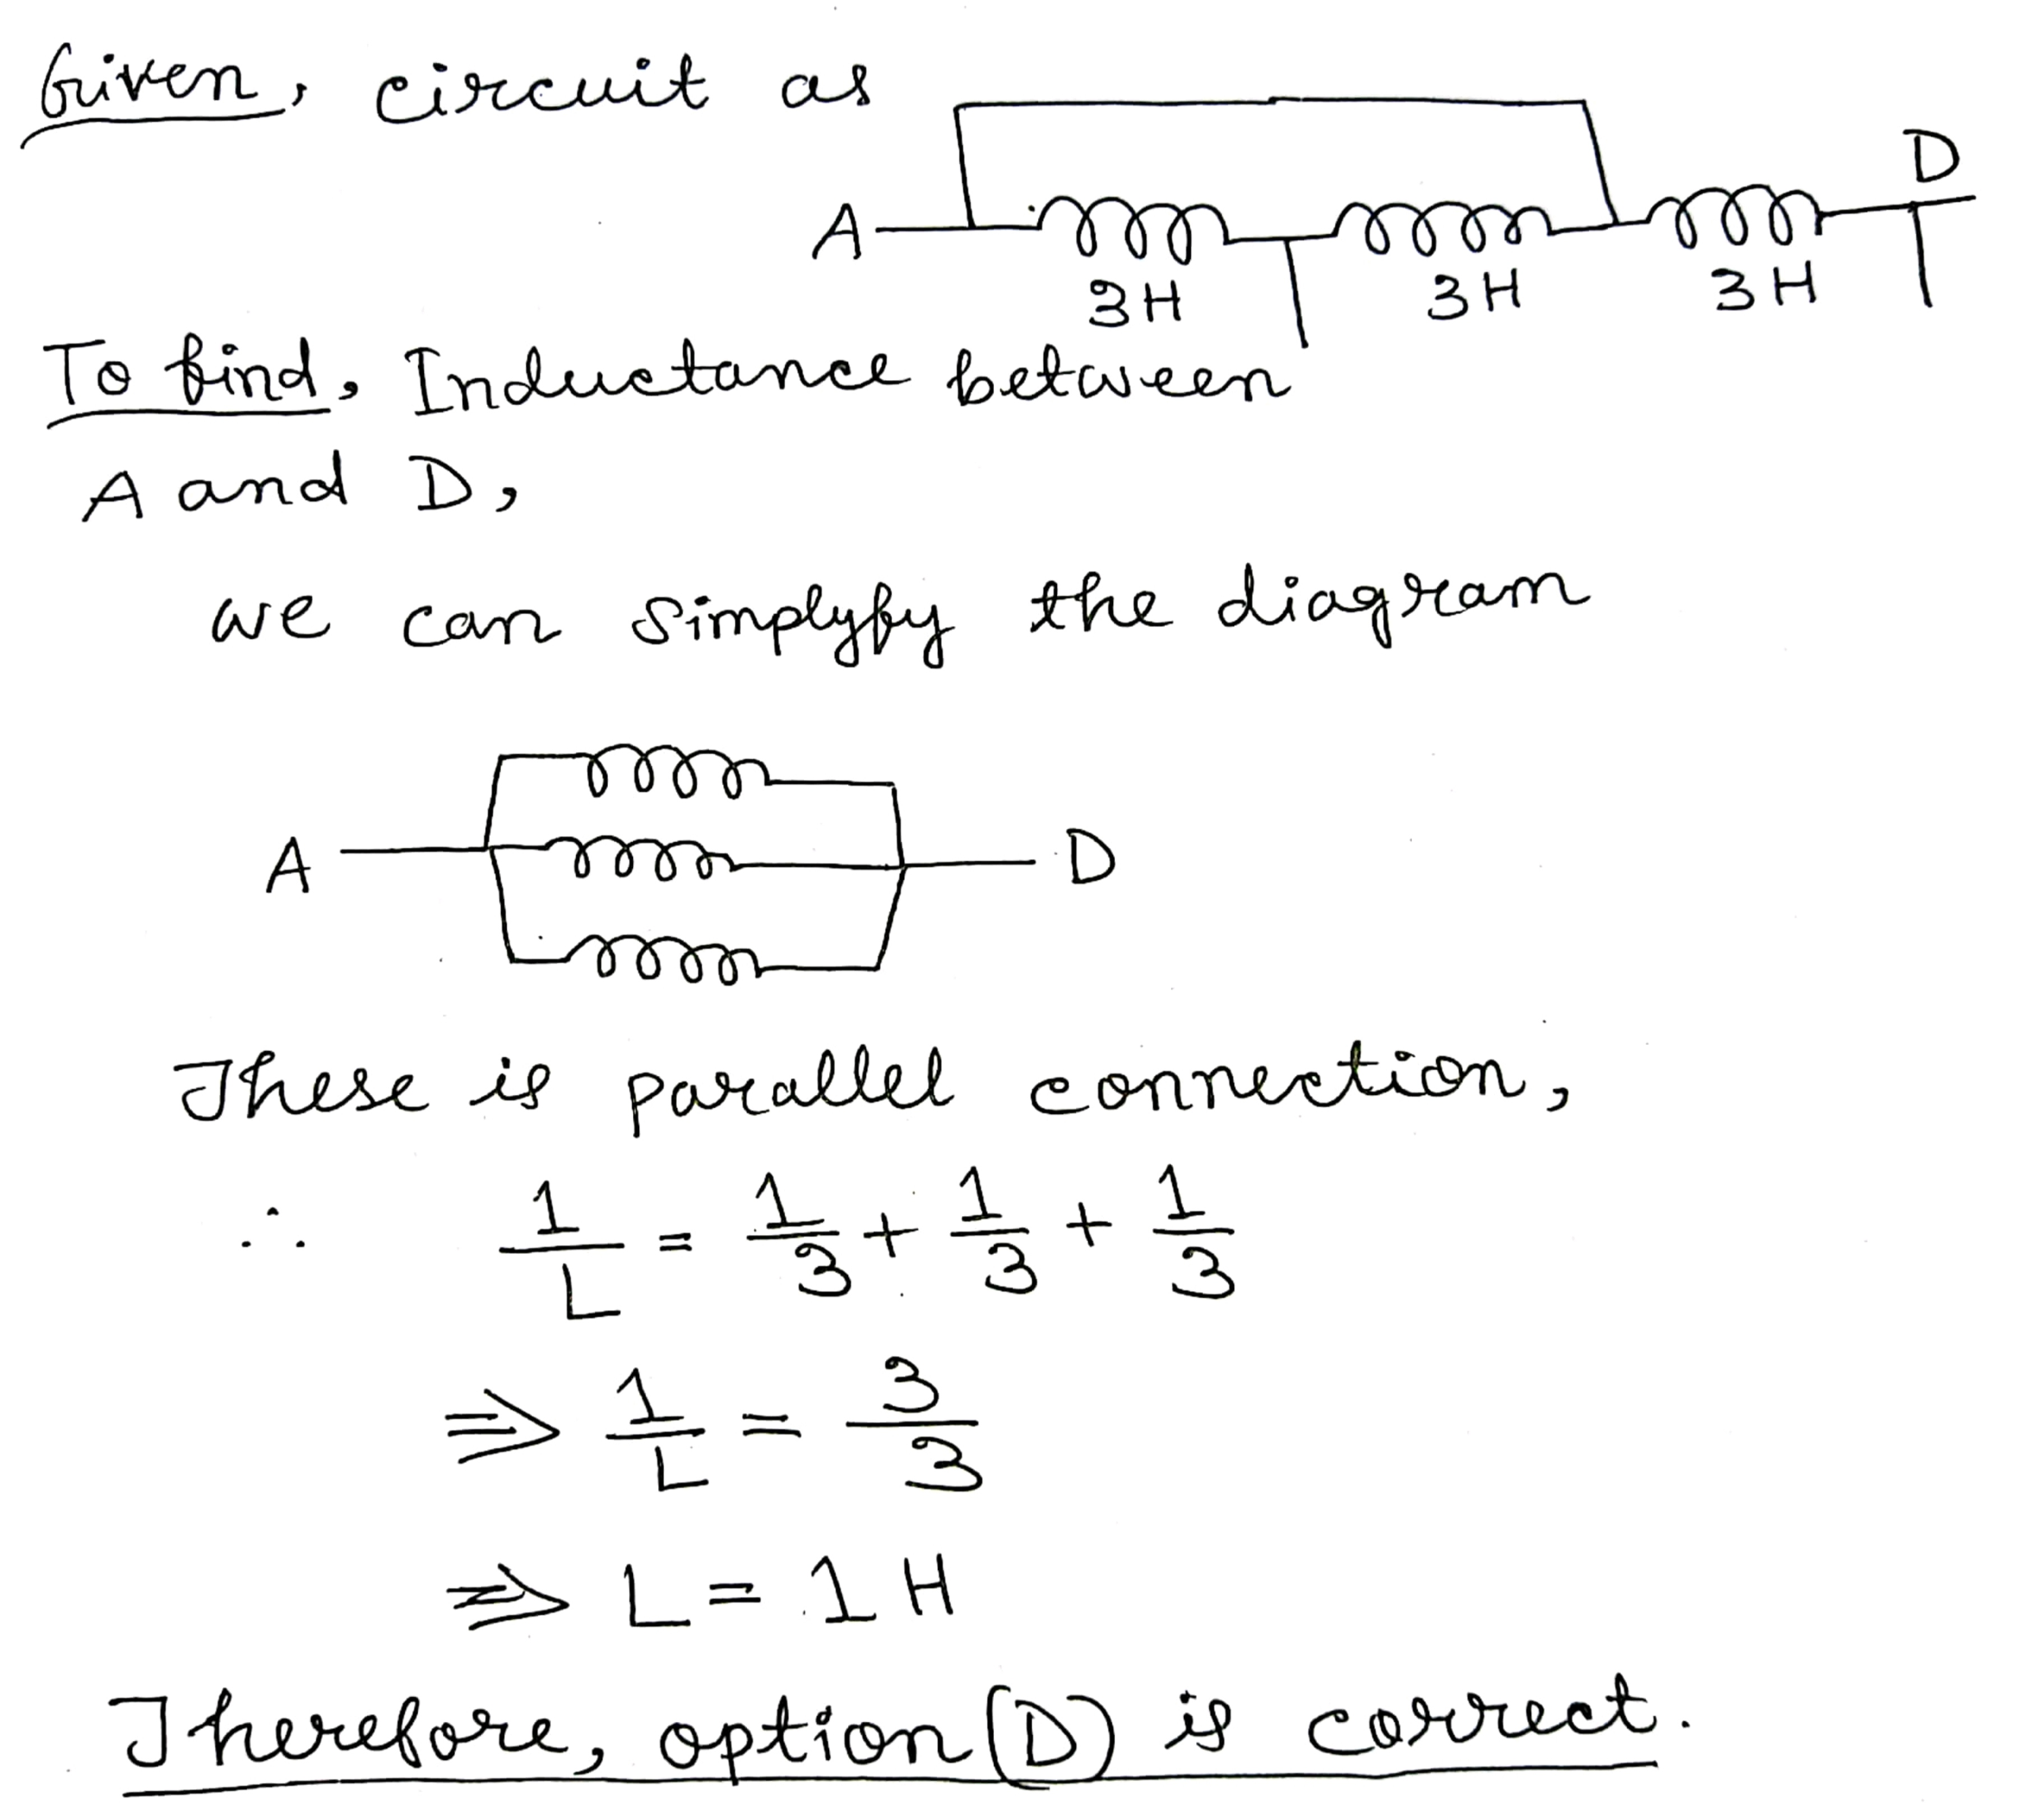 Given, circuit as
D
A
3H 3H 3H
To find, Inductance between
A and D,
we can simplyfy the diagram
A D
These is parallel connection,
∴ 1/L = 1/3 + 1/3 + 1/3
⇒ 1/L = 3/3
⇒ L = 1 H
Therefore, option (D) is correct.